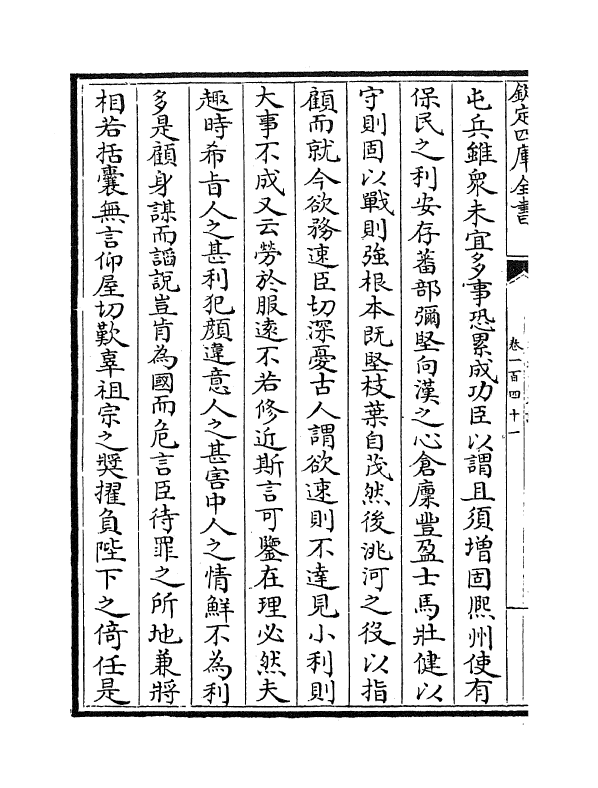 欽定四庫全書
卷一百四十一
屯兵雖衆未宜多事恐累成功臣以謂且須增固熈州使有
保民之利安存蕃部彌堅向漢之心倉廩豐盈士馬壯健以
守則固以戰則強根本既堅枝葉自茂然後洮河之役以指
顧而就今欲務速臣切深憂古人謂欲速則不達見小利則
大事不成又云勞於服逺不若修近斯言可鑒在理必然夫
趣時希旨人之甚利犯顔違意人之甚害中人之情鮮不為利
多是顧身謀而謟說豈肯為國而危言臣待罪之所地兼將
相若括囊無言仰屋切歎辜祖宗之奬擢負陛下之倚任是